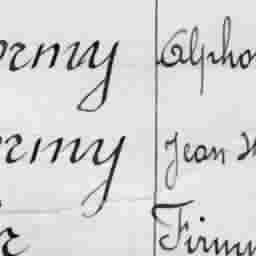 ormy Alpho
ormy Jean
r Firmi